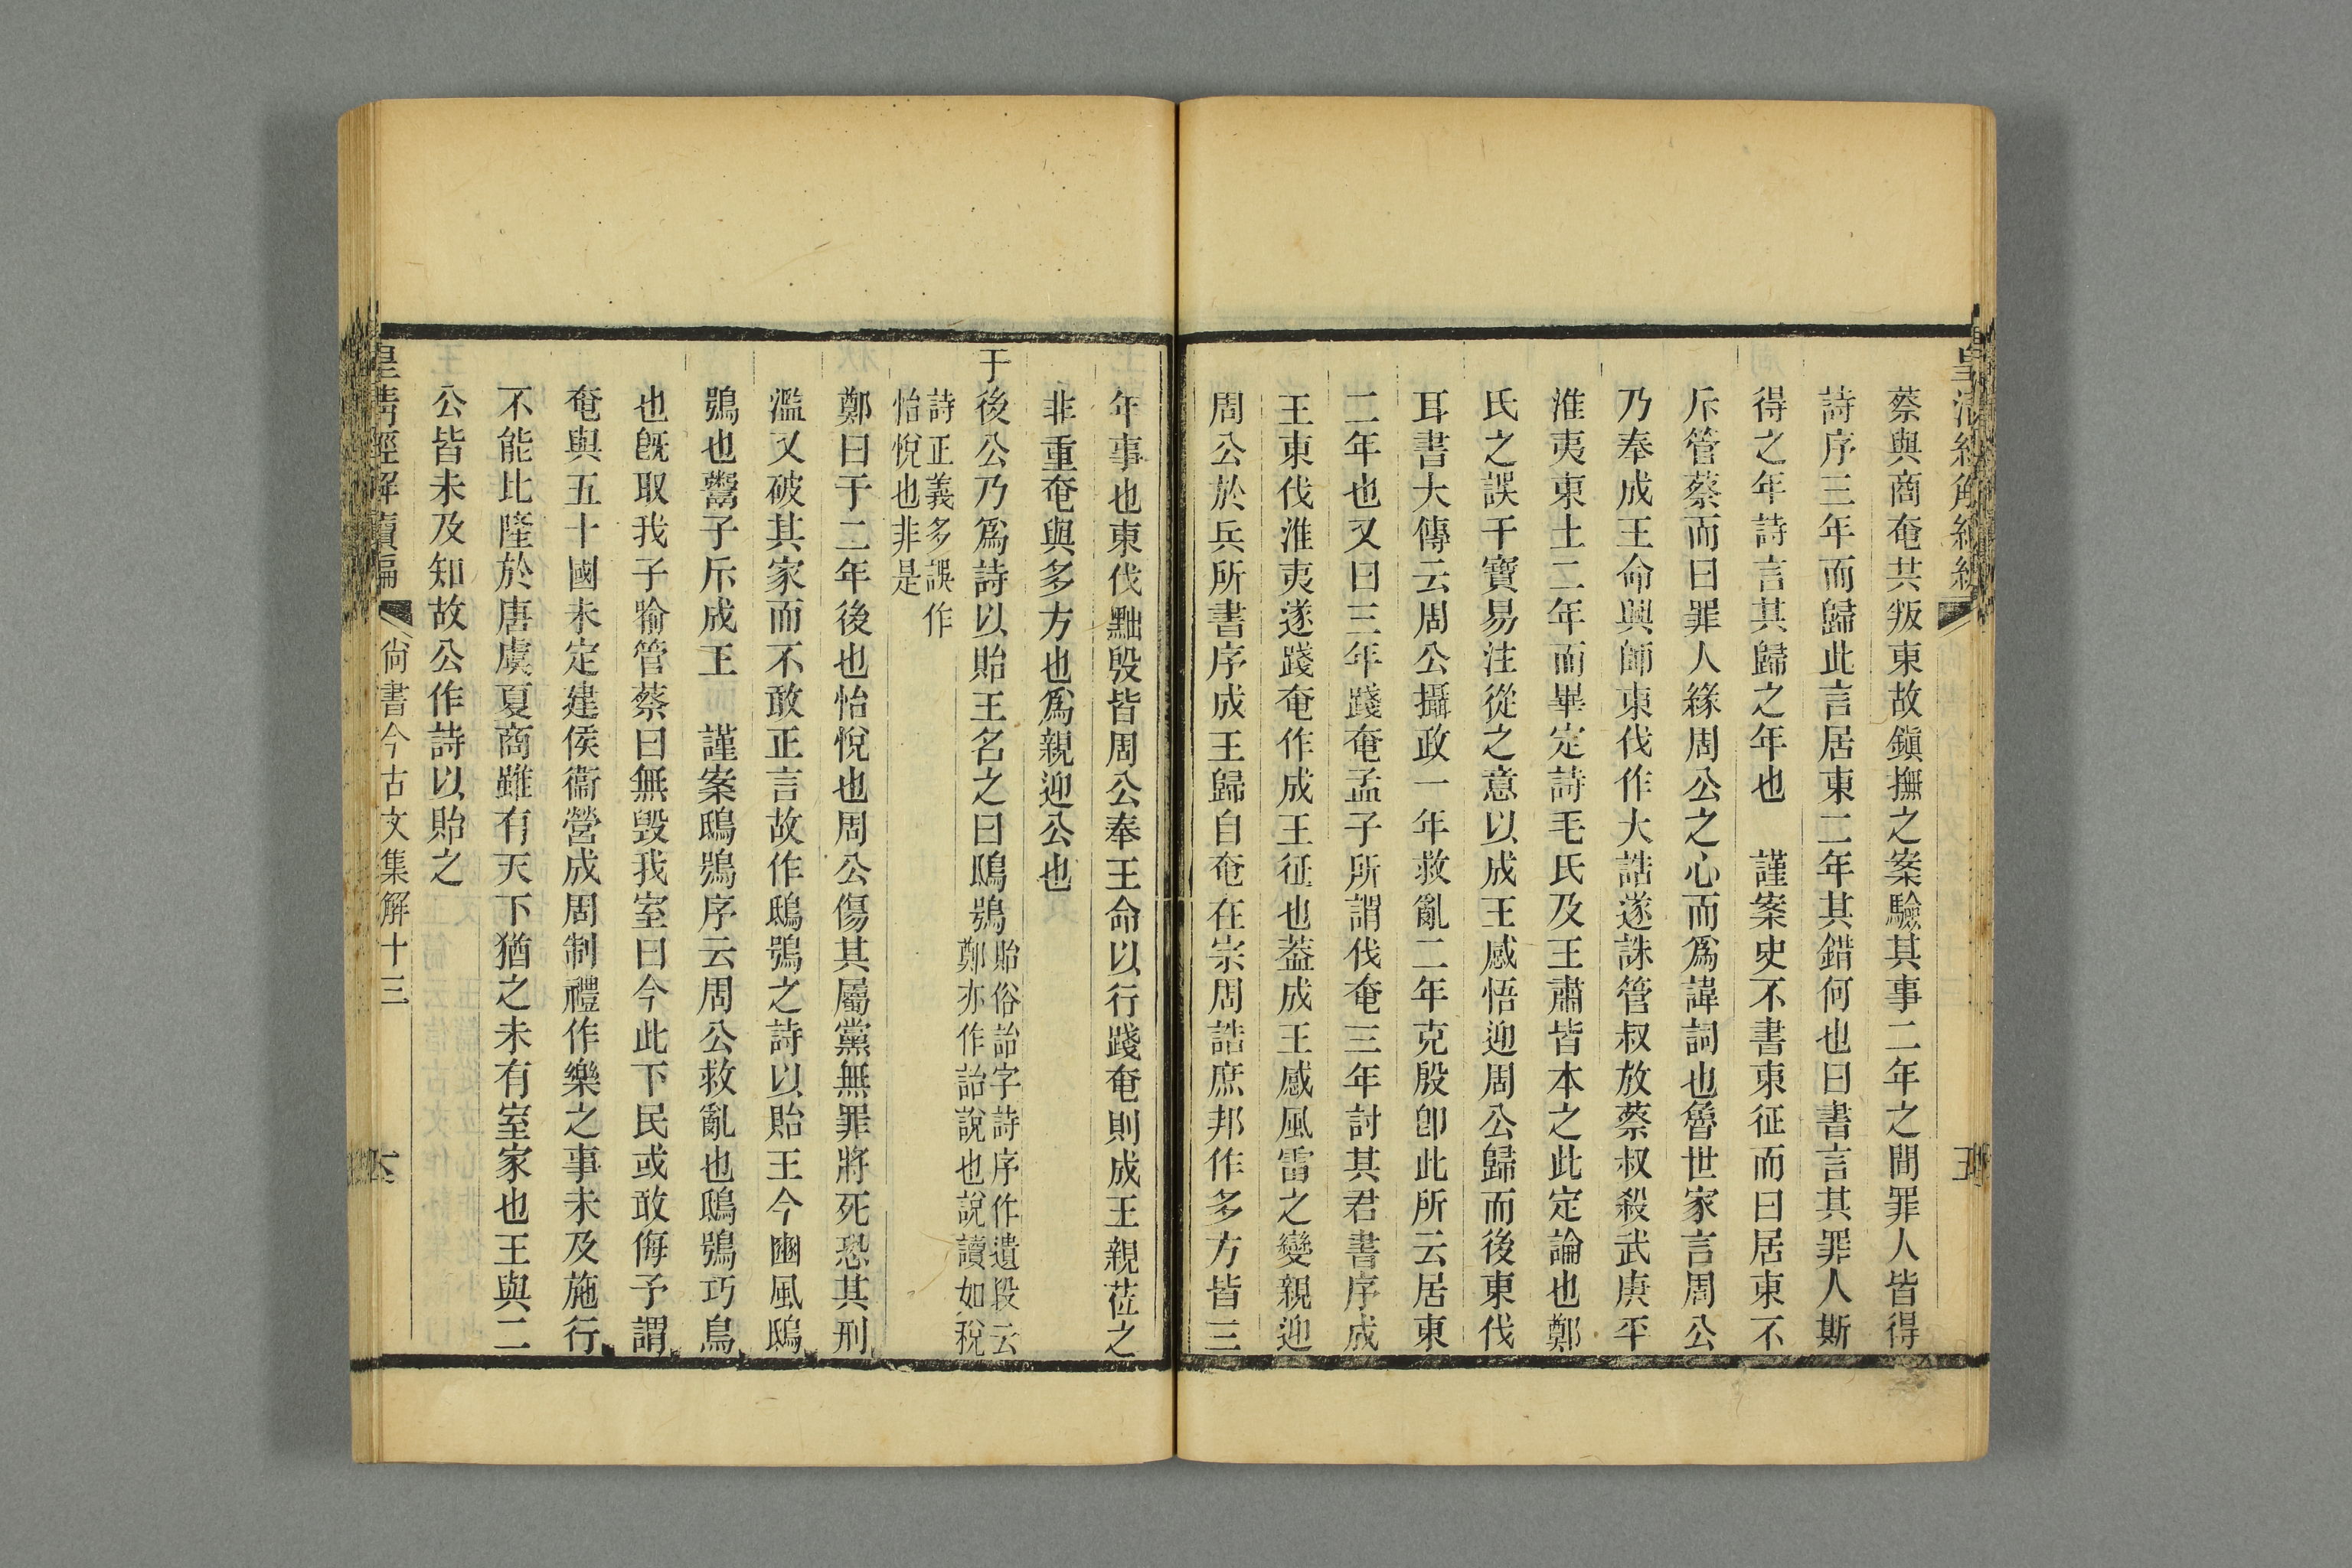 蔡與商奄共叛東故鎭撫之案驗其事二年之間罪人皆得
詩序三年而歸此言居東二年其錯何也曰書言其罪人斯
得之年詩言其歸之年也　謹案史不書東征而曰居東不
斥管蔡而曰罪人緣周公之心而爲諱詞也魯世家言周公
乃奉成王命興師東伐作大誥遂誅管叔放蔡叔殺武庚平
淮夷東土二年而畢定詩毛氏及王肅皆本之此定論也鄭
氏之誤干寶易注從之意以成王感悟迎周公歸而後東伐
耳書大傳云周公攝政一年救亂二年克殷卽此所云居東
二年也又曰三年踐奄孟子所謂伐奄三年討其君書序成
王東伐淮夷遂踐奄作成王征也葢成王感風雷之變親迎
周公於兵所書序成王歸自奄在宗周誥庶邦作多方皆三
年事也東伐黜殷皆周公奉王命以行踐奄則成王親莅之
非重奄與多方也爲親迎公也
于後公乃爲詩以貽王名之曰鴟鴞
貽俗詒字詩序作遺段云
鄭亦作詒說也說讀如稅
詩正義多誤作
怡悅也非是
鄭曰于二年後也怡悅也周公傷其屬黨無罪將死恐其刑
濫又破其家而不敢正言故作鴟鴞之詩以貽王今豳風鴟
鴞也鬻子斥成王　謹案鴟鴞序云周公救亂也鴟鴞巧鳥
也旣取我子喻管蔡曰無毁我室曰今此下民或敢侮予謂
奄與五十國未定建侯衞營成周制禮作樂之事未及施行
不能比隆於唐虞夏商雖有天下猶之未有室家也王與二
公皆未及知故公作詩以貽之
皇清經解續編
尙書今古文集解十三